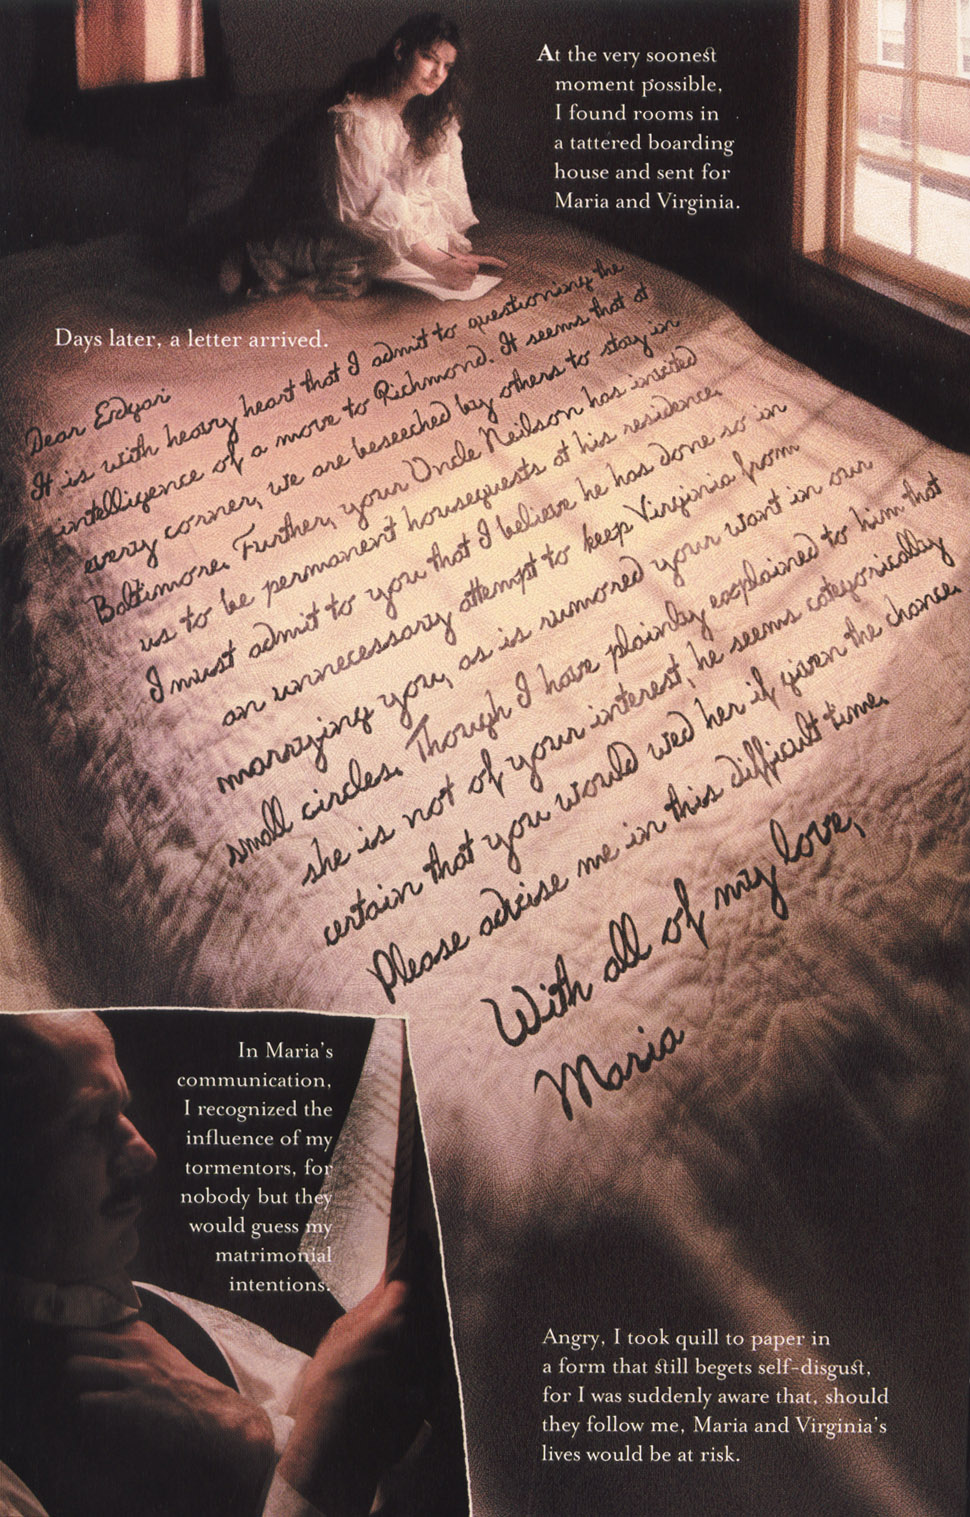 At the very soonest
moment possible,
I found rooms in
a tattered boarding
house and sent for
Maria and Virginia.
Days later, a letter arrived.
Dear Edgar
It is with heavy heart that I admit to questioning the
intelligence of a move to Richmond. It seems that at
every corner, we are beseeched by others to stay in
Baltimore. Further, your Uncle Neilson has invited
us to be permanent houseguests at his residence.
I must admit to you that I believe he has done so in
an unnecessary attempt to keep Virginia from
marrying you, as is rumored your want in our
small circles. Though I have plainly explained to him that
she is not of your interest, he seems categorically
certain that you would wed her if given the chance.
Please advise me in this difficult time.
With all of my love,
Maria
In Maria's
communication,
I recognized the
influence of my
tormentors, for
nobody but they
would guess my
matrimonial
intentions.
Angry, I took quill to paper in
a form that still begets self-disgust,
for I was suddenly aware that, should
they follow me, Maria and Virginia's
lives would be at risk.